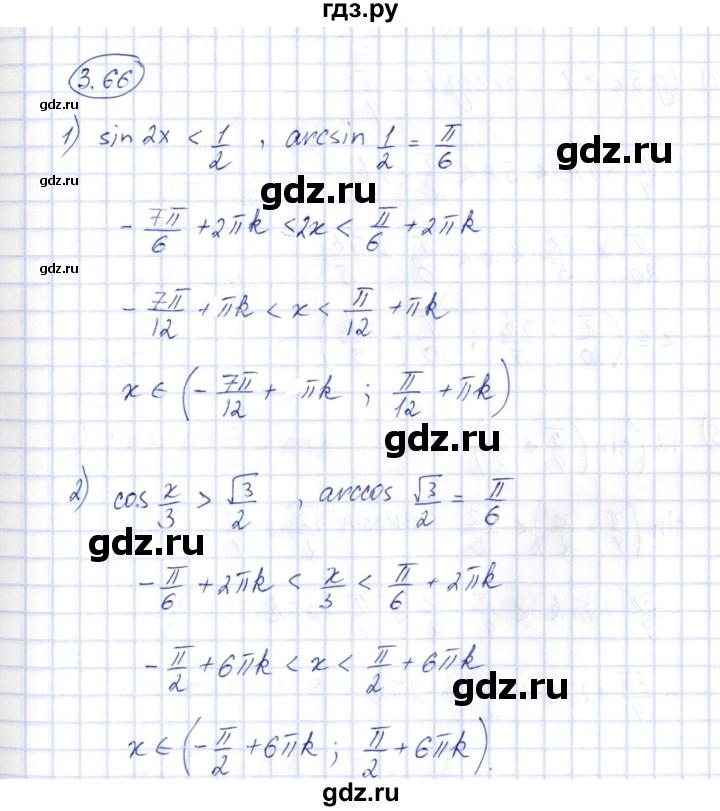 гдз.ру
3.66
1) sin 2x < 1/2 , arcsin 1/2 = π/6
gdz.ru
gdz.ru
-7π/6 + 2πk < 2x < π/6 + 2πk
gdz.ru
-7π/12 + πk < x < π/12 + πk
x ∈ (-7π/12 + πk ; π/12 + πk)
gdz.ru
2) cos x/3 > √3/2 , arccos √3/2 = π/6
gdz.ru
-π/6 + 2πk < x/3 < π/6 + 2πk
gdz.ru
-π/2 + 6πk < x < π/2 + 6πk
gdz.ru
x ∈ (-π/2 + 6πk ; π/2 + 6πk).
gdz.ru